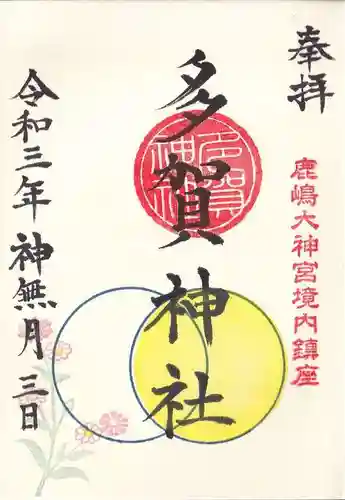 奉拝
鹿嶋大神宮境内鎮座
多賀神社
令和三年 神無月 三日